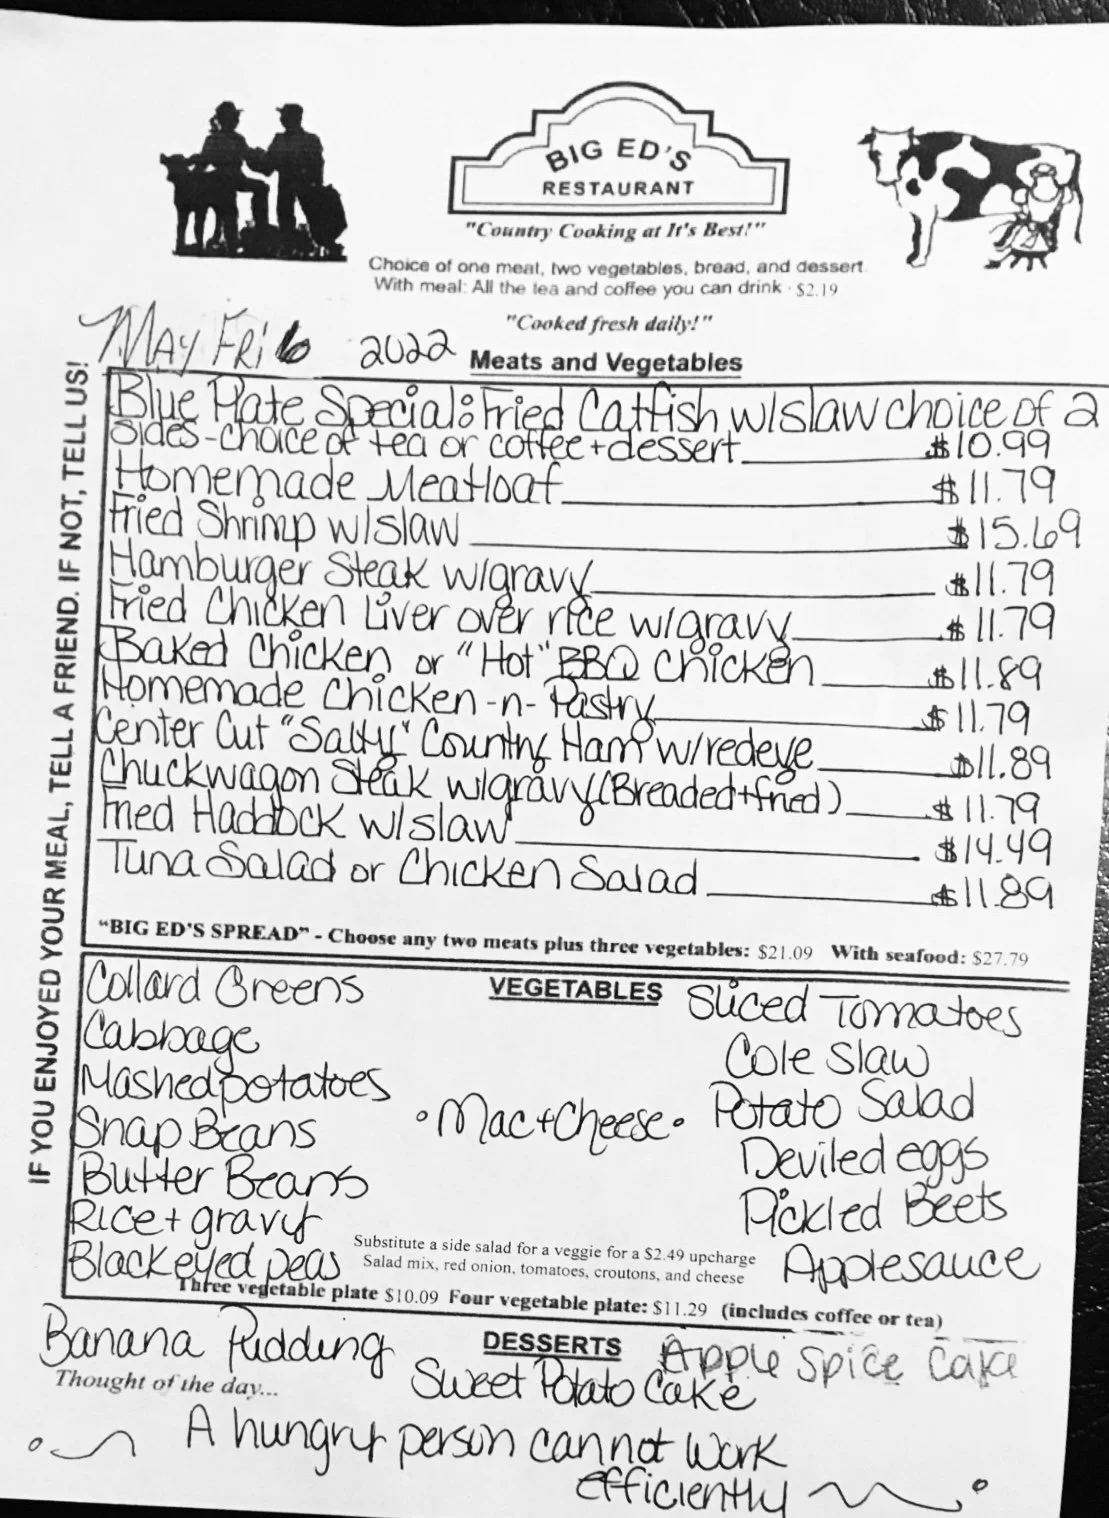 BIG ED'S
RESTAURANT
"Country Cooking at It's Best!"
Choice of one meat, two vegetables, bread, and dessert.
With meal: All the tea and coffee you can drink · $2.19
"Cooked fresh daily!"
MAY Fri 6 2022
Meats and Vegetables
Blue Plate Special: Fried Catfish w/slaw choice of 2
sides - choice of tea or coffee + dessert $10.99
Homemade Meatloaf $11.79
Fried Shrimp w/slaw $15.69
Hamburger Steak w/gravy $11.79
Fried Chicken Liver over rice w/gravy $11.79
Baked Chicken or "Hot" BBQ Chicken $11.89
Homemade Chicken -n- Pastry $11.79
Center Cut "Salty" Country Ham w/redeye $11.89
Chuckwagon Steak w/gravy (Breaded + fried) $11.79
Fried Haddock w/slaw $14.49
Tuna Salad or Chicken Salad $11.89
"BIG ED'S SPREAD" - Choose any two meats plus three vegetables: $21.09 With seafood: $27.79
IF YOU ENJOYED YOUR MEAL, TELL A FRIEND. IF NOT, TELL US!
VEGETABLES
Collard Greens
Cabbage
Mashed potatoes
Snap Beans
Butter Beans
Rice + gravy
Blackeyed peas
• Mac + Cheese •
Sliced Tomatoes
Cole Slaw
Potato Salad
Deviled eggs
Pickled Beets
Applesauce
Substitute a side salad for a veggie for a $2.49 upcharge
Salad mix, red onion, tomatoes, croutons, and cheese
Three vegetable plate $10.09 Four vegetable plate: $11.29 (includes coffee or tea)
DESSERTS
Banana Pudding
Sweet Potato Cake
Apple Spice Cake
Thought of the day...
A hungry person cannot work
efficiently